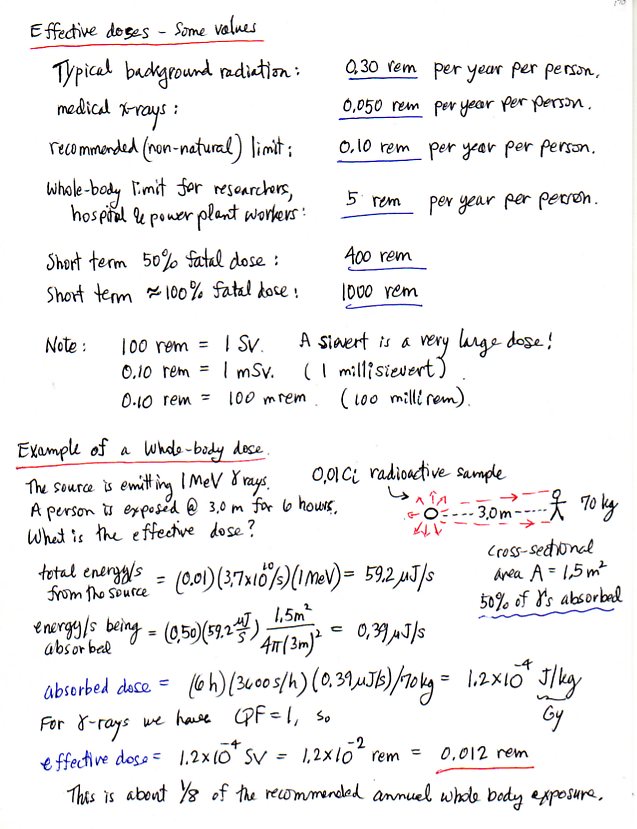 Effective doses – Some values
Typical background radiation: 0.30 rem per year per person.
medical x-rays: 0.050 rem per year per person.
recommended (non-natural) limit: 0.10 rem per year per person.
Whole-body limit for researchers,
hospital & power plant workers: 5 rem per year per person.
Short term 50% fatal dose: 400 rem
Short term ≈100% fatal dose: 1000 rem
Note: 100 rem = 1 Sv. A sievert is a very large dose!
0.10 rem = 1 mSv. (1 millisievert)
0.10 rem = 100 mrem. (100 millirem).
Example of a Whole-body dose.
The source is emitting 1 MeV γ rays.
A person is exposed @ 3.0 m for 6 hours.
What is the effective dose?
0.01 Ci radioactive sample
3.0 m
70 kg
cross-sectional
area A = 1.5 m²
50% of γ's absorbed
total energy/s from the source = (0.01)(3.7×10¹⁰/s)(1 MeV) = 59.2 μJ/s
energy/s being absorbed = (0.50)(59.2 μJ/s) 1.5m²/4π(3m)² = 0.39 μJ/s
absorbed dose = (6h)(3600 s/h)(0.39 μJ/s)/70kg = 1.2×10⁻⁴ J/kg
Gy
For γ-rays we have QF = 1, so
effective dose = 1.2×10⁻⁴ Sv = 1.2×10⁻² rem = 0.012 rem
This is about 1/8 of the recommended annual whole body exposure.